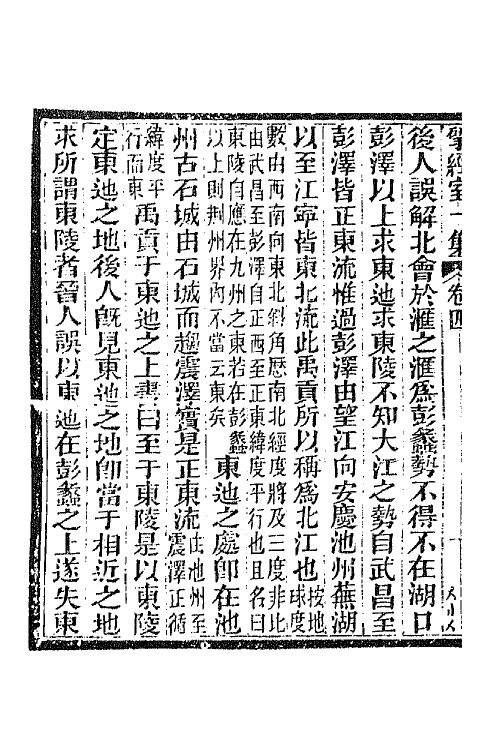 揅經室一集 卷四
後人誤解北會於滙之滙爲彭蠡勢不得不在湖口
彭澤以上求東迆求東陵不知大江之勢自武昌至
彭澤皆正東流惟過彭澤由望江向安慶池州蕪湖
以至江寧皆東北流此禹貢所以稱爲北江也按地球度
數由西南向東北斜角歷南北經度將及三度非比
由武昌至彭澤自正西至正東緯度平行也且名曰
東陵自應在九州之東若在彭蠡
以上則荆州界內不當云東矣東迆之處卽在池
州古石城由石城而趨震澤實是正東流由池州至震澤正循
緯度平
行而東禹貢于東迆之上書曰至于東陵是以東陵
定東迆之地後人旣見東迆之地卽當于相近之地
求所謂東陵者晉人誤以東迆在彭蠡之上遂失東